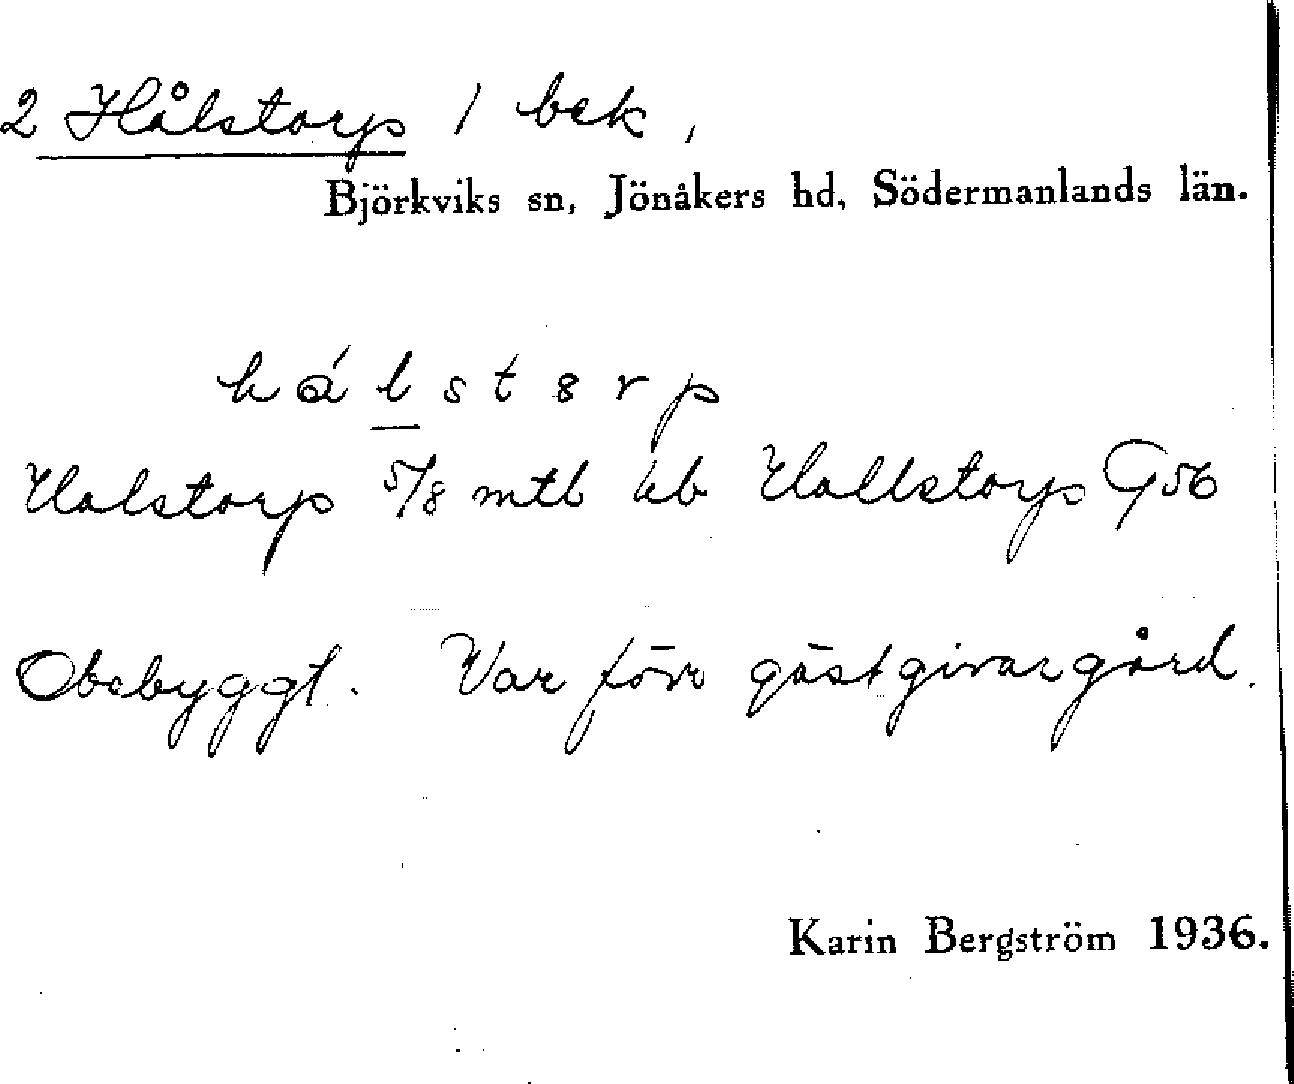 2 Hålstorp / bek,
Björkviks sn, Jönåkers hd, Södermanlands län.
hálstərp
Halstorp 5/8 mtl Hallstorp G 56
Obebyggt. Var förr gästgivargård.
Karin Bergström 1936.